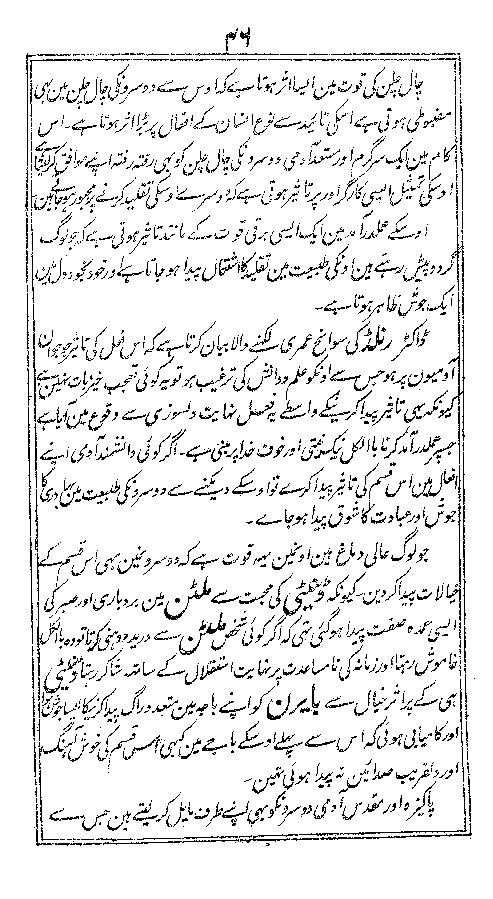 ۴۶
چال چلن کی قوت مین ایسا اثر ہوتا ہے کہ اوس سے دوسرونکی چال چلن مین بہی
مضبوطی ہوتی ہے اسکی تائید سے نوع انسان کے افعال پر بڑا اثر ہوتا ہے۔ اس
کام مین ایک سرگرم اور مستعد آدمی دوسرونکی چال چلن کو بہی رفتہ رفتہ اپنے موافق کرلیتا ہے
اوسکی تمثیل ایسی کارگر اور پر تاثیر ہوتی ہے کہ دوسرے اوسکی تقلید کرنے پر مجبور ہوجاتے ہین
اوسکے عملدرآمد مین ایک ایسی برقی قوت کے مانند تاثیر ہوتی ہے کہ جو لوگ
گرد و پیش رہتے ہین اونکی طبیعت مین تقلید کا اشتعال پیدا ہو جاتا ہے اور خود بخود دل مین
ایک جوش ظاہر ہوتا ہے۔
ڈاکٹر رنلڈ کی سوانح عمری لکہنے والا بیان کرتا ہے کہ اس فعل کی تاثیر جو جوان
آدمیون پر ہو جس سے اونکو علم و دانش کی ترغیب ہو تو یہ کوئی تعجب خیز بات نہین ہے
کیونکہ یہی تاثیر پیدا کرنیکے واسطے یہ فعل نہایت دلسوزی سے وقوع مین آیا ہے
جسپر عملدرآمد کرنا بالکل نیک نیتی اور خوف خدا پر مبنی ہے۔ اگر کوئی دانشمند آدمی اپنے
افعال مین اس قسم کی تاثیر پیدا کرے تو اوسکے دیکہنے سے دوسرونکی طبیعت مین بہادری کا
جوش اور عبادت کا شوق پیدا ہو جاے۔
جو لوگ عالی دماغ ہین اونمین یہہ قوت ہے کہ دوسرونمین بہی اس قسم کے
خیالات پیدا کردین۔ کیونکہ ڈینٹی کی محبت سے ملٹن مین بردباری اور صبر کی
ایسی عمدہ صفت پیدا ہوگئی تہی کہ اگر کوئی شخص ملٹن سے دریدہ دہنی کرتا تو وہ بالکل
خاموش رہتا اور زمانہ کی نامساعدت پر نہایت استقلال کے ساتہہ شاکر رہتا ڈینٹی
ہی کے پر اثر خیال سے بایرن کو اپنے باجہ مین متعدد راگ پیدا کرنیکا ایسا جوش ہوا
اور کامیابی ہوئی کہ اس سے پہلے اوسکے باجے مین کبہی اس قسم کی خوش آہنگ
اور دلفریب صدائین نہ پیدا ہوئی تہین۔
پاکیزہ اور مقدس آدمی دوسرونکو بہی اپنے طرف مایل کرلیتے ہین جس سے